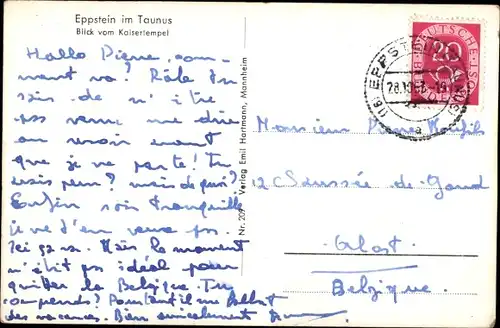 Eppstein im Taunus
Blick vom Kaisertempel
Hallo Pierre, com-
ment va? Râle
de n'être
pas venu me dire
au revoir avant
que je ne parte! Tu
peur? mais de quoi?
Enfin sois tranquille
je ne t'en veux pas.
Ici ça va. Mais le moment
n'était pas idéal pour
quitter la Belgique. Tu
comprends? Pourtant il me fallait
des vacances. Bien amicalement
Nr. 205 Verlag Emil Hartmann, Mannheim
DEUTSCHE
20
(16) EPPSTEIN
28.10.
TAUNUS
a
Monsieur Pierre
12 Chaussée de Gand
Alost
Belgique.